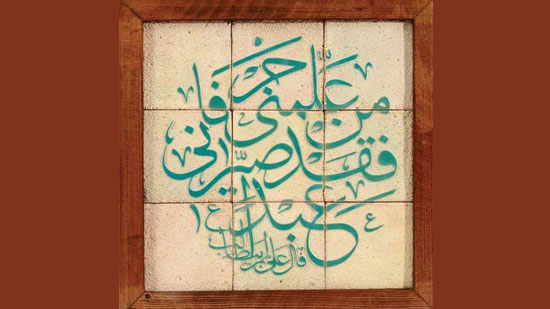 من علّمنی حرفاً
فقد صیّرنی
عبداً
قال علی بن ابیطالب